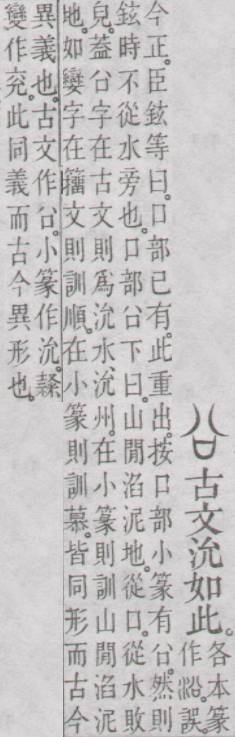 㕣古文沇如此。
各本篆
作㳂。誤。
今正。臣鉉等曰。口部已有。此重出。按口部小篆有㕣。然則
鉉時不從水旁也。口部㕣下曰。山閒淊泥地。從口。從水敗
皃。葢㕣字在古文則爲沇水、沇州。在小篆則訓山閒淊泥
地。如孌字在籒文則訓順。在小篆則訓慕。皆同形而古今
異義也。古文作㕣。小篆作沇。隸
變作兖。此同義而古今異形也。